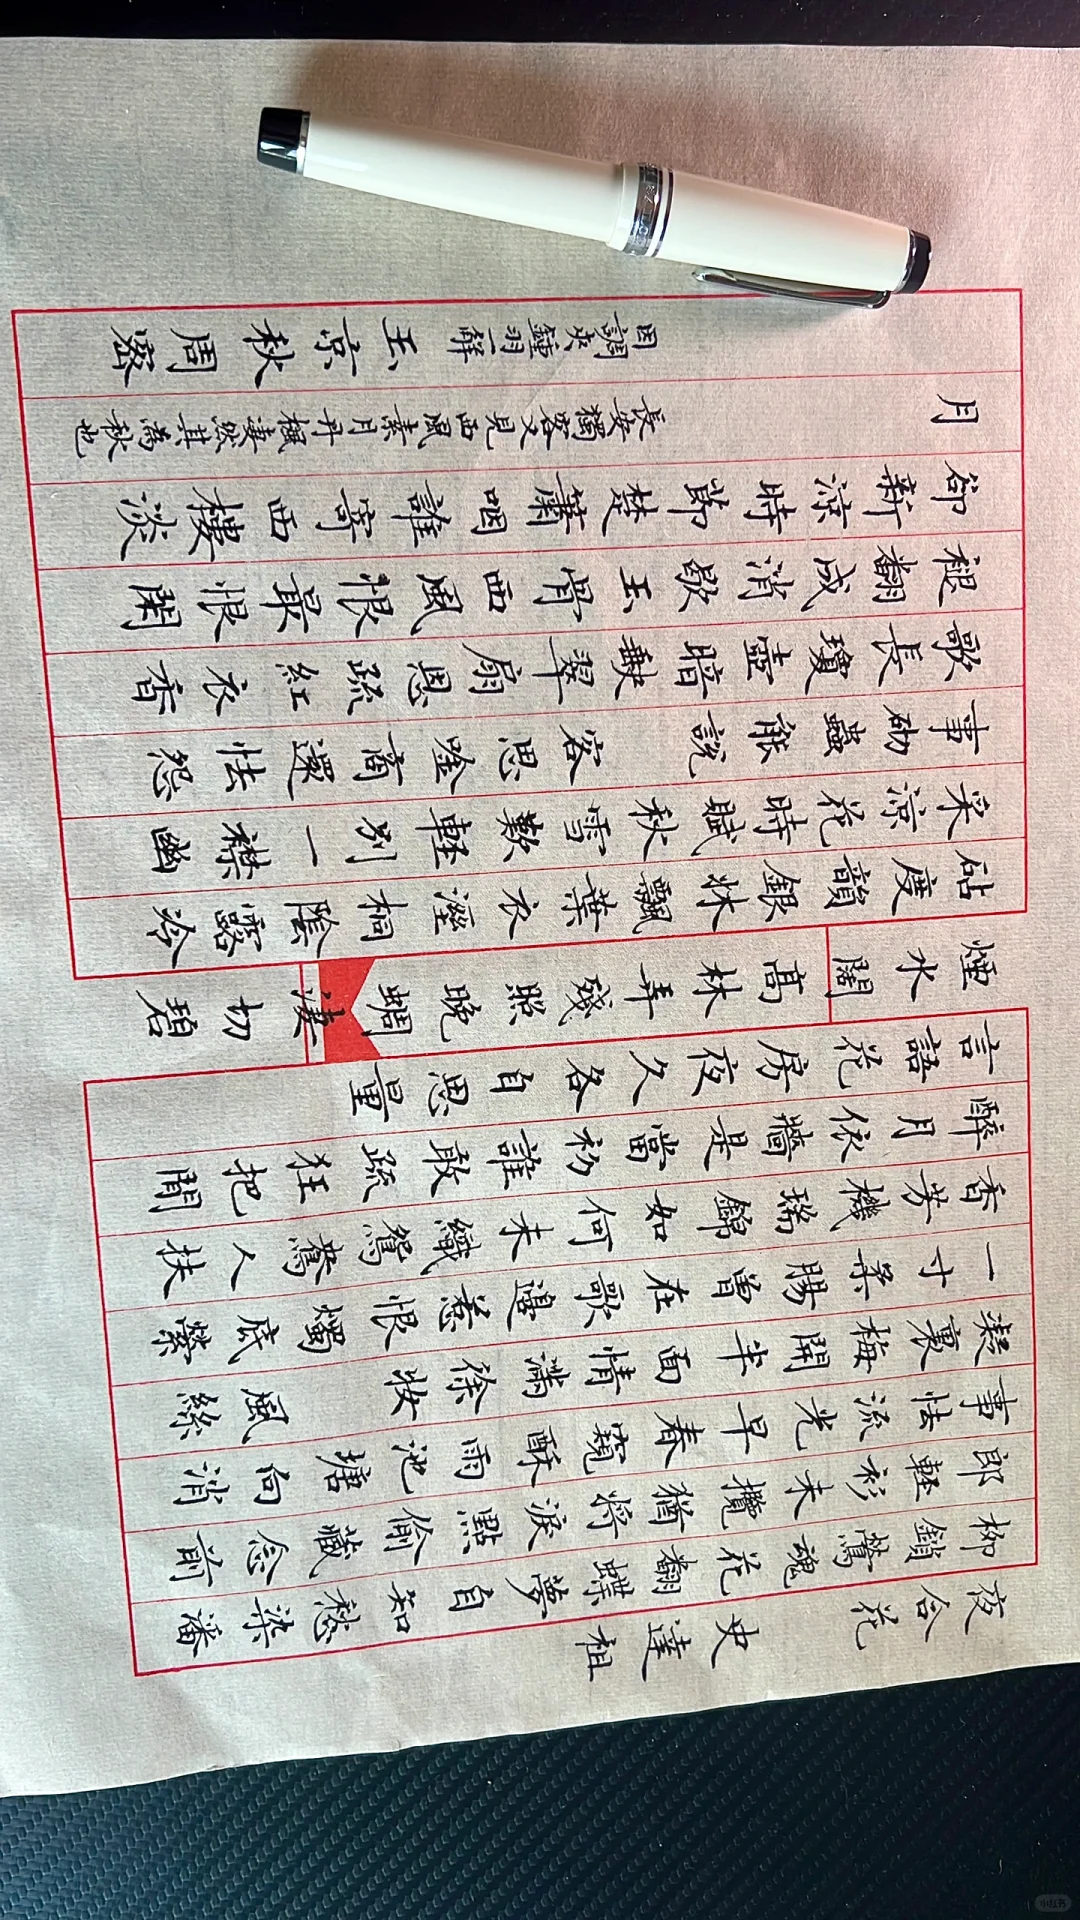 夜合花 史達祖
柳鎖鶯魂花翻蝶夢自知愁染潘
郎輕衫未攬猶將淚點偷藏念前
事怯流光早春窺酥雨池塘向消
凝裏梅開半面情滿徐妝 風絲
一寸柔腸曾在歌邊惹恨燭底縈
香芳機瑞錦如何未織鴛鴦人扶
醉月依牆是當初誰敢疏狂把閒
言語花房夜久各自思量
煙水闊高林弄殘照晚蜩淒切碧
砧度韻銀牀飄葉衣溼桐陰露冷
采涼花時賦秋雪歎輕別一襟幽
事砌蟲能說 客思吟商還怯怨
歌長瓊壺暗缺翠扇恩疏紅衣香
褪翻成消歇玉骨西風恨最恨閒
卻新涼時節楚簫咽誰寄西樓淡
月 長安獨客又見西風素月丹楓淒然其為秋也
因調夾鍾羽一解 玉京秋周密